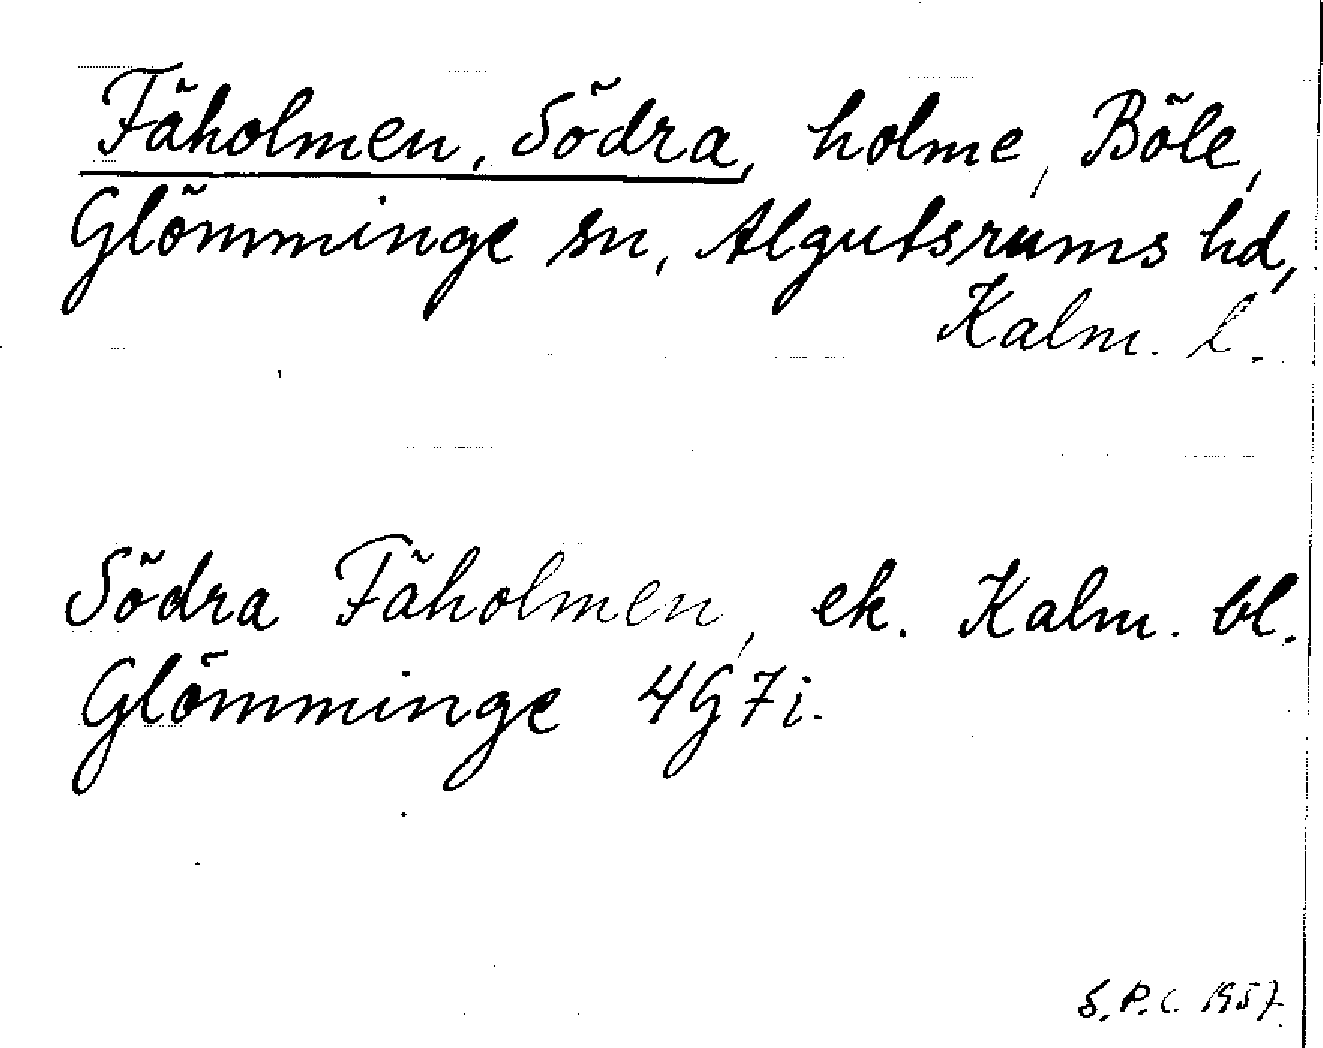 Fäholmen, Södra, holme, Böle,
Glömminge sn, Algutsrums hd,
Kalm. l.
Södra Fäholmen, ek. Kalm. bl.
Glömminge 4G7i.
S.P.C. 1957.